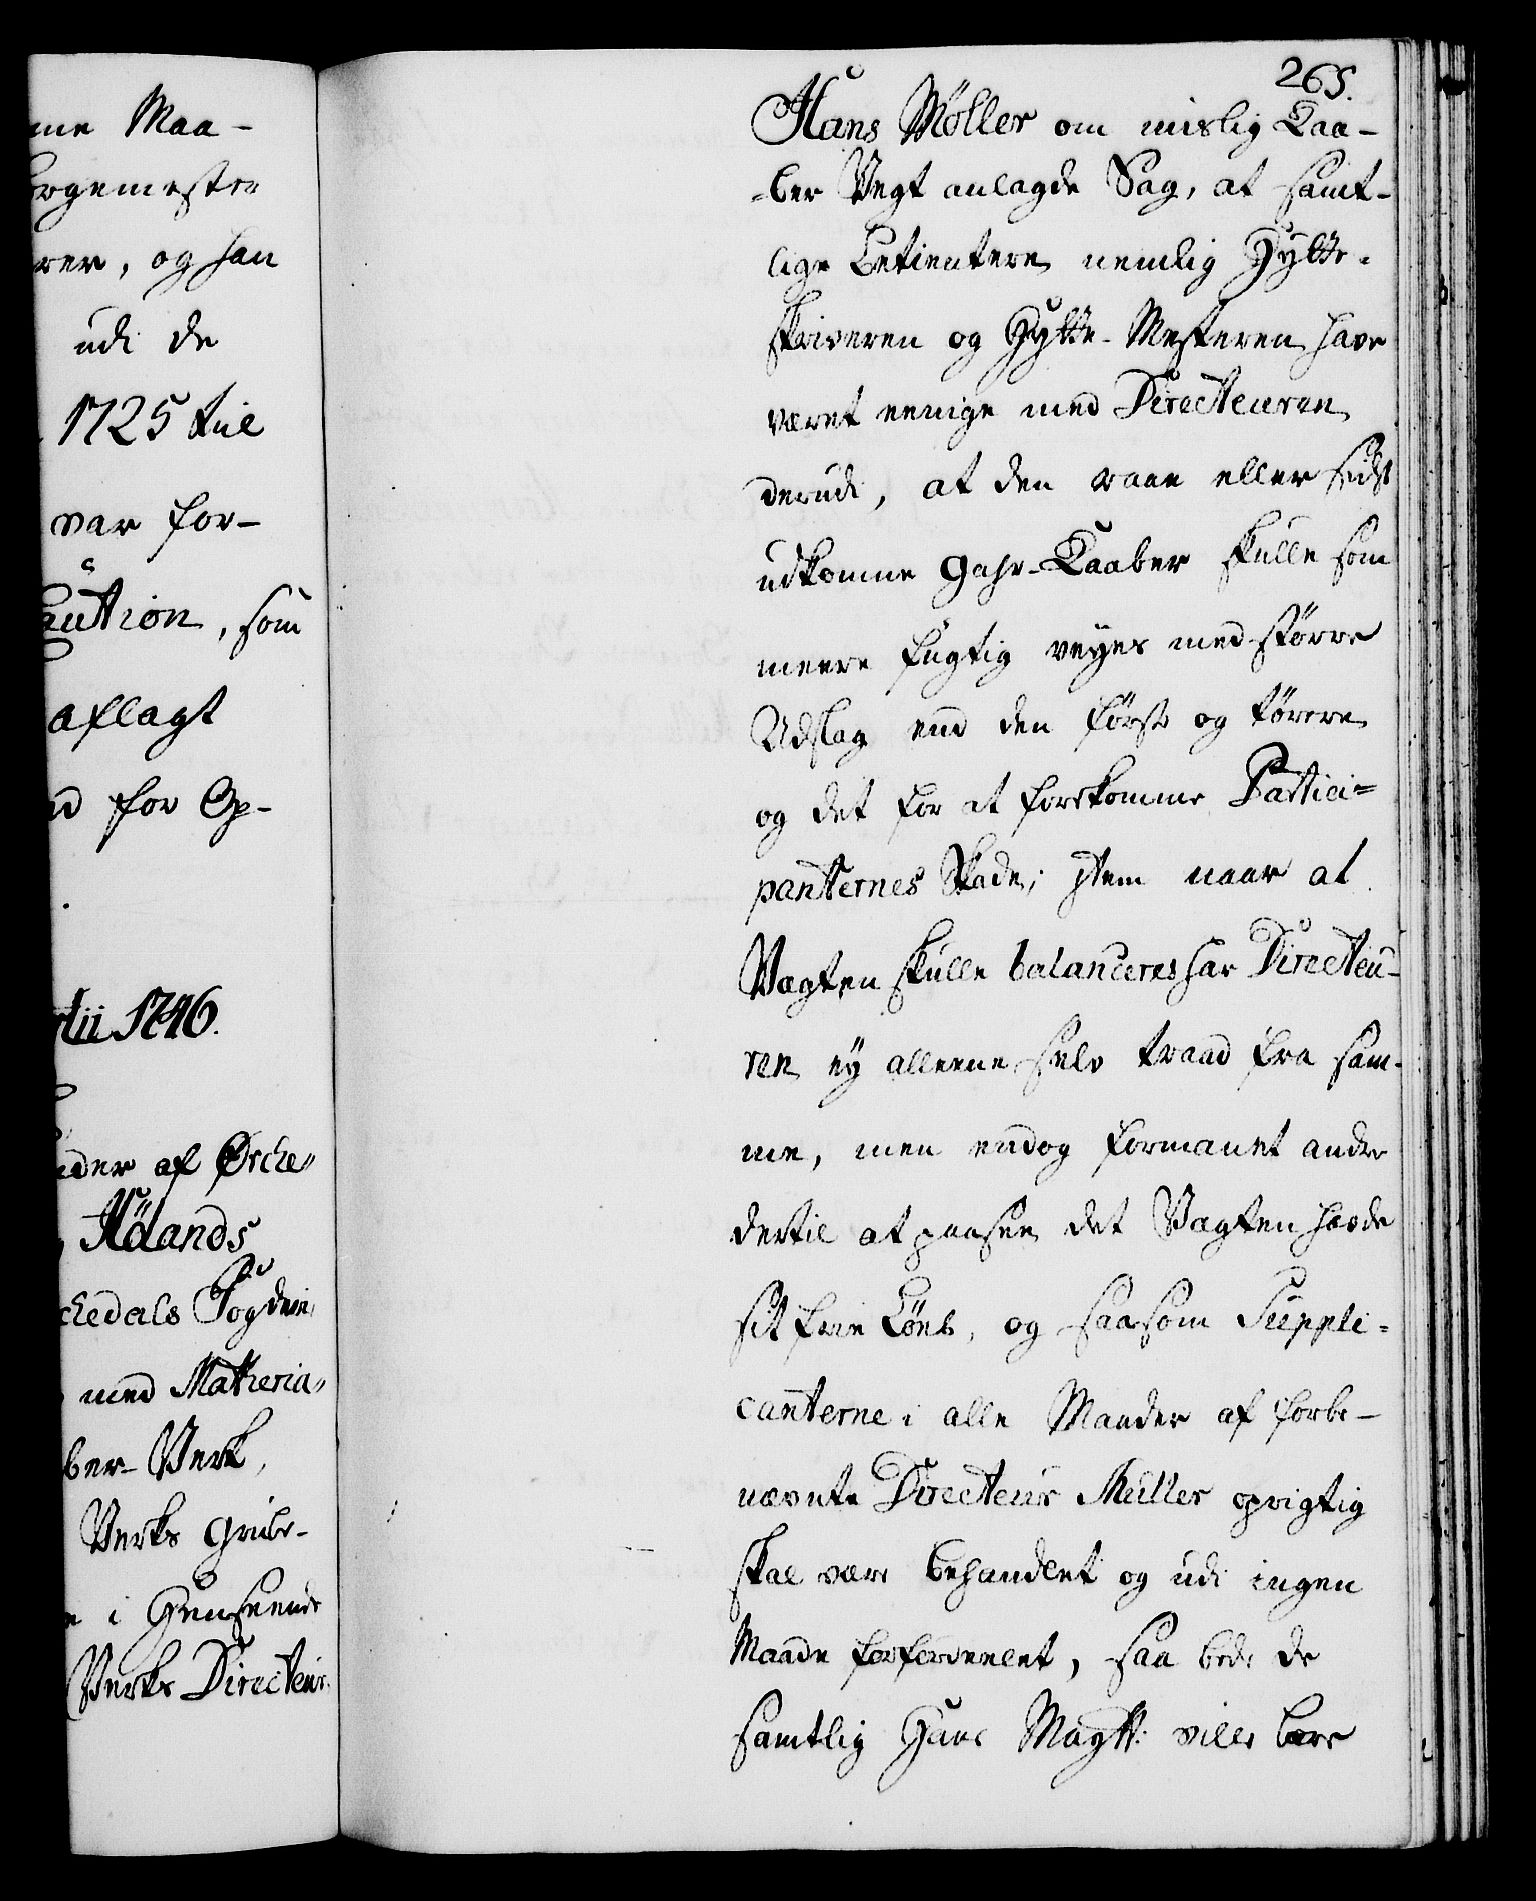 me Maa-
orgemester
rer, og han
udi de
1725 til
var for-
aution, som
aflagt
for Op-
tii 1746.
nder af Örche"
Ådands
chedals Fogderi
med Materia"
ber-Verk,
Verks Grube-
i Henseende
Verks Directeur
265.
Hans Möller om mislig Kaa-
-ber Vegt anlagde Sag, at samt-
lige Betientere nemlig Hytte-
skriveren og Hytte-Mesteren have
været eenige med Directeuren
derudi, at den raae eller sidst
udkomne Gahr-Kaaber skulle som
meere fugtig veyes med större
Udslag end den först og törere
og det for at forekomme Partici=
panternes Skade; Item naar at
Vægten skulle balanceres har Directeu-
ren ey alleene selv traad fra sam-
me, men endog formanet andre
dertil at paasee det Vægten hafde
sit frie Löb, og saasom Suppli=
canterne i alle Maader af forbe-
nævnte Directeur Müller oprigtig
skal være behandlet og udi ingen
Maade forfordeelet, saa bede de
samtlig Hans Maytt: ville lade